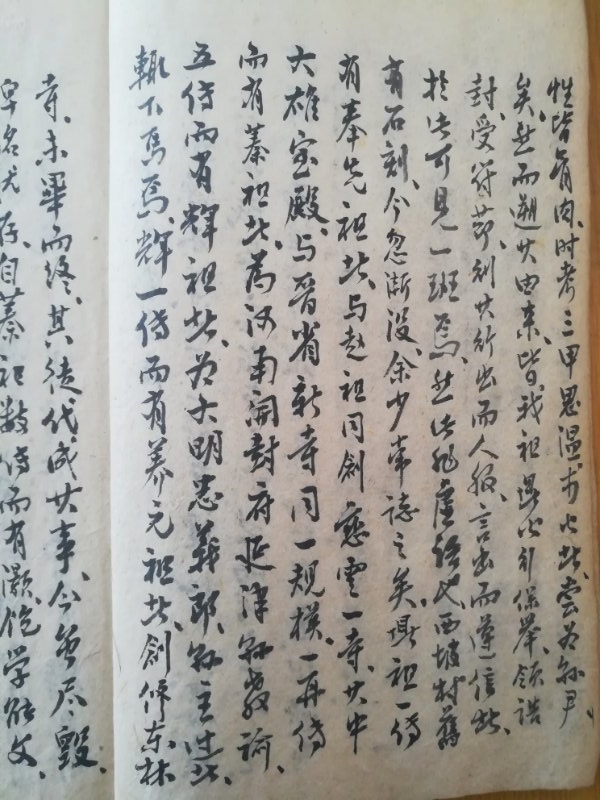 性皆有肉、时考三甲思温者、尝为孙尹、
矣、然而遡其由来、皆我祖 引保举、领诰
封、受符节、则其行出而人服、言出而遵信者、
於此可见一斑焉、然此非虚语也、西坡村旧
有石刻、今忽渐没、余少常志之矣、 祖一传
有奉先祖者、与赵祖同创慈云一寺、其中
大雄宝殿、与晋省新寺同一规模、一再传
而有蓁祖者、为河南开封府延津 教谕、
五传而有辉祖者、为大明忠义郎、 主 者、
辄下焉焉、辉一传而有养元祖者、创修东林
寺、未毕而终、其徒代成其事、今皆尽毁、
卑名尤存、自蓁祖数传而有灏 饱学能文、